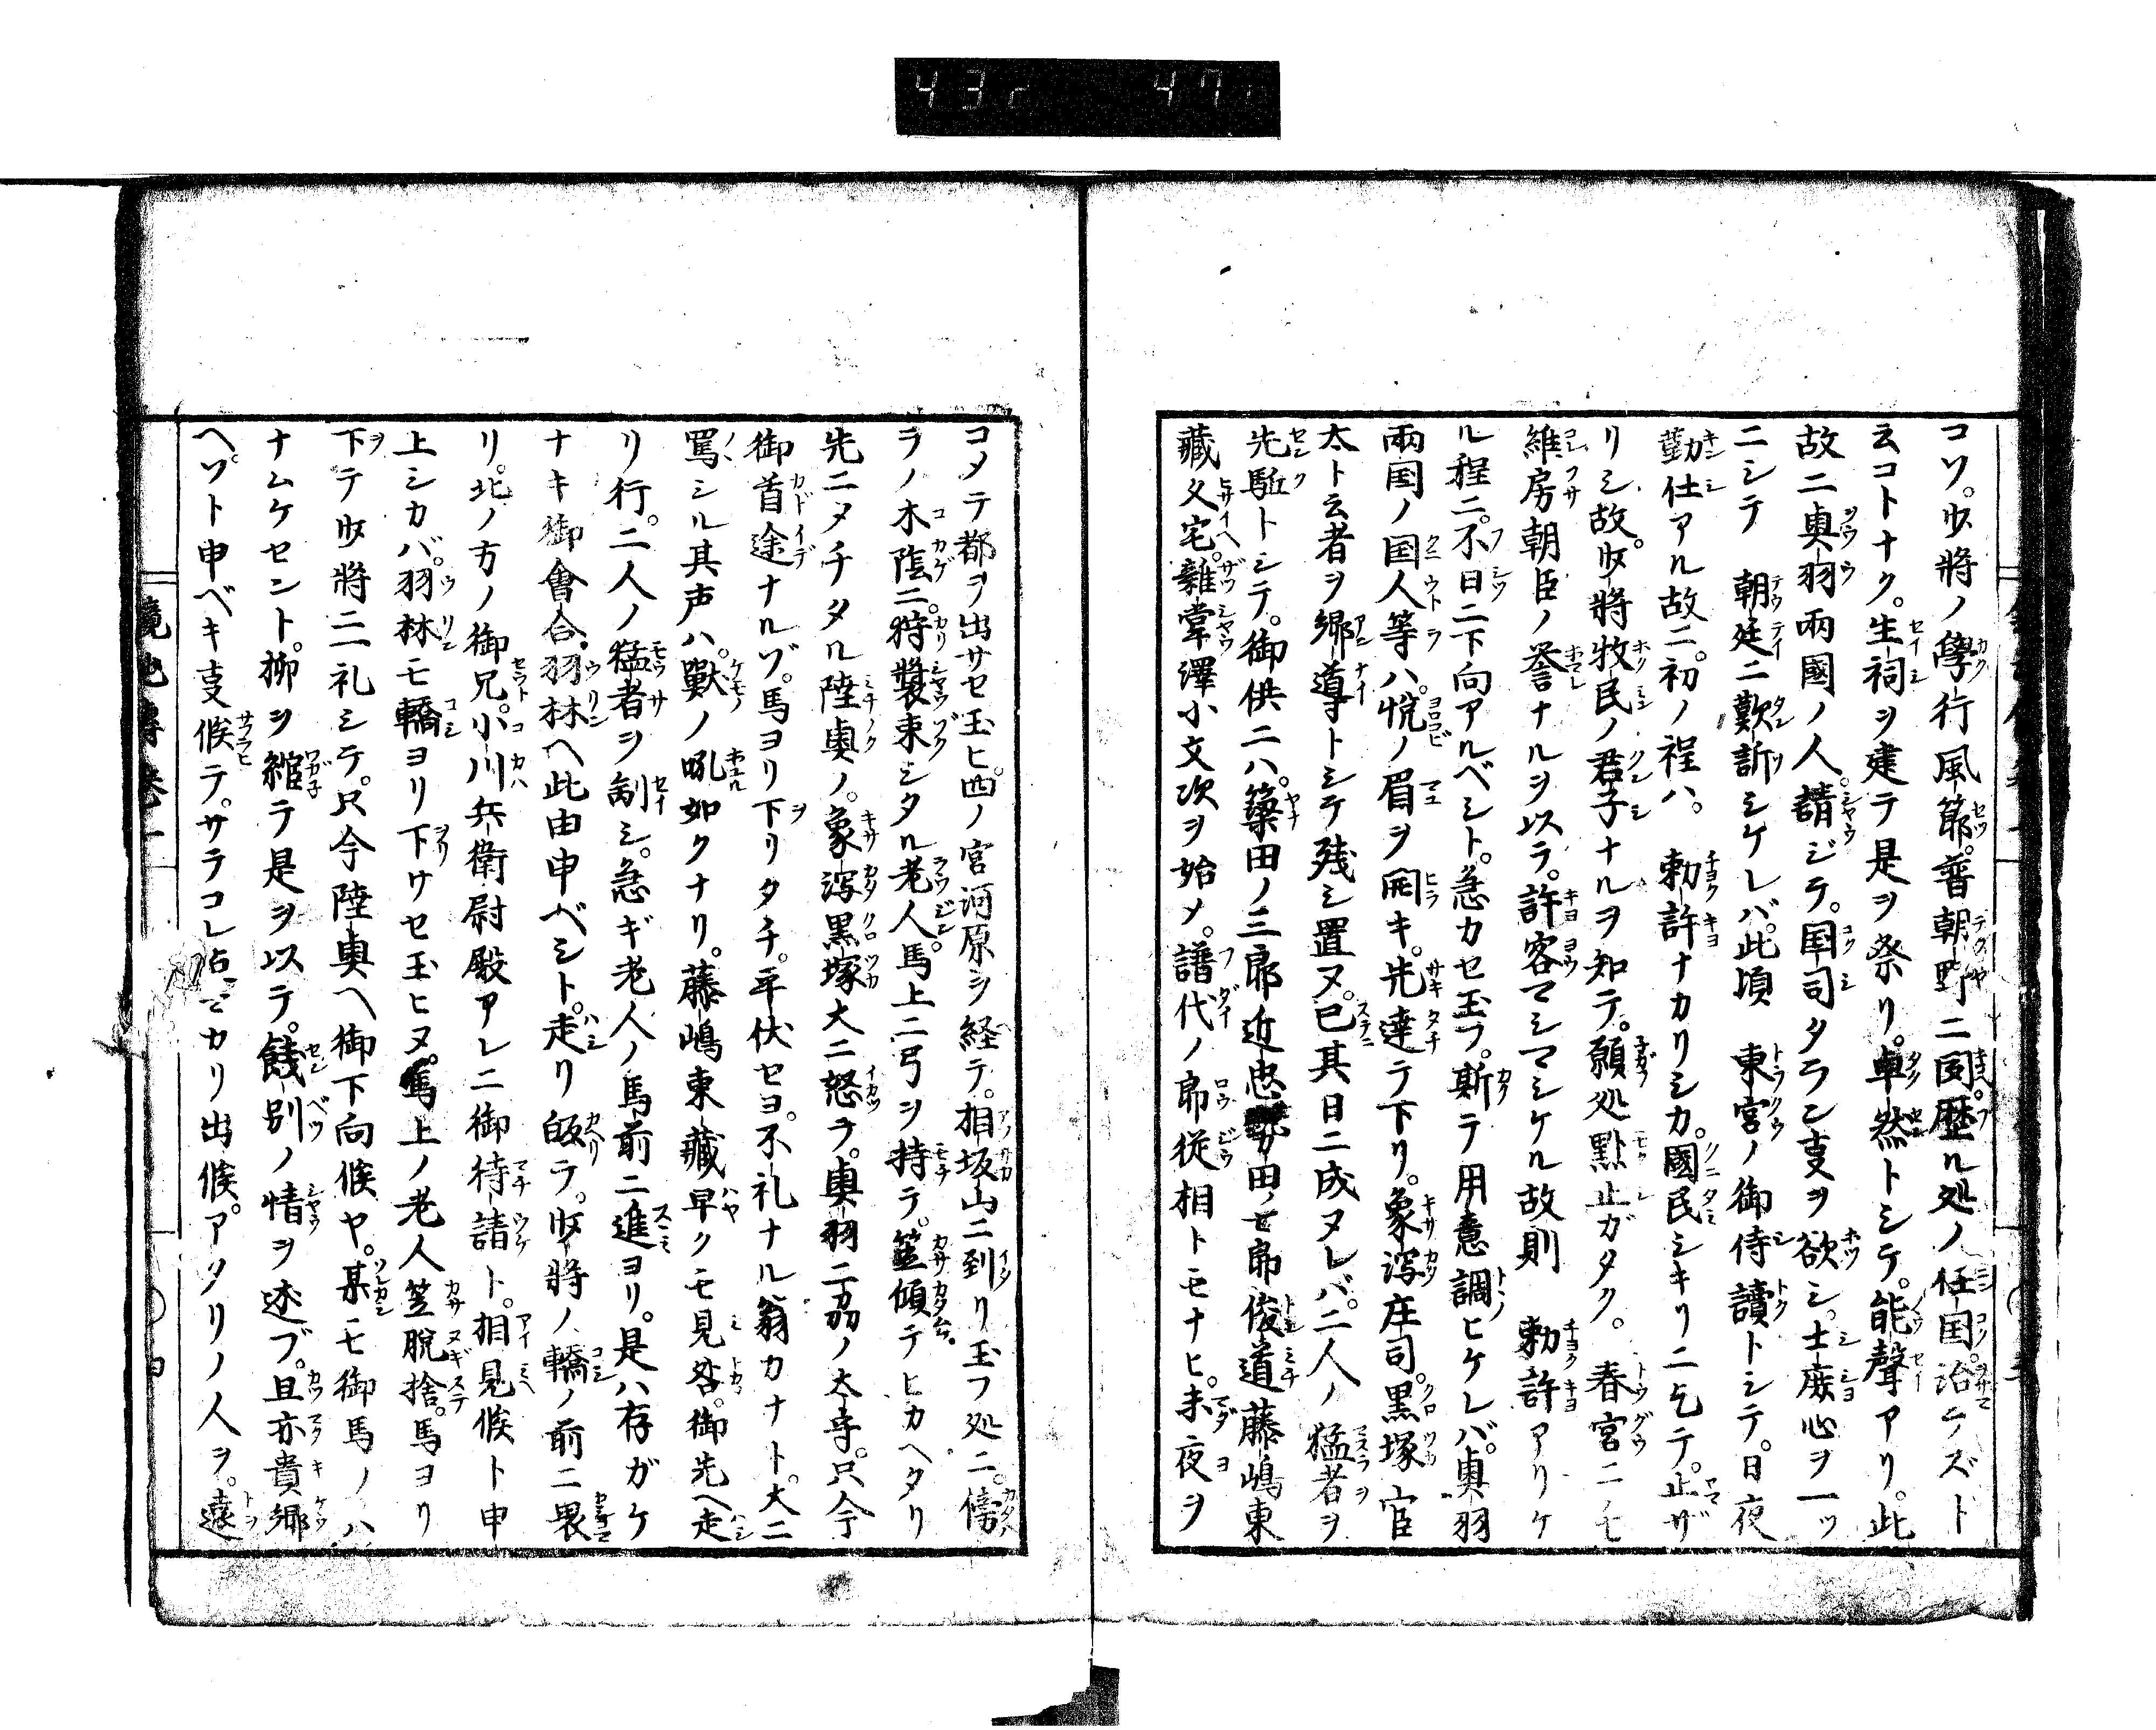 コソ。少将ノ學行風節。普朝野ニ聞。歴ル処ノ任国。治ケズト
云コトナク。生祠ヲ建テ是ヲ祭リ。卓然トシテ。能聲アリ。此
故ニ奥羽兩國ノ人。請ジテ。国司タラン叓ヲ欲シ。士庶心ヲ一ツ
ニシテ 朝廷ニ歎訴シケレバ。此頃 東宮ノ御侍讀トシテ。日夜
勤仕アル故ニ。初ノ程ハ。 勅許ナカリシカ。國民シキリニ乞テ。止ザ
リシ故。少将牧民ノ君子ナルヲ知テ。願処點止ガタク。 春宮ニモ
維房朝臣ノ誉ナルヲ以テ。許容マシマシケル故則 勅許アリケ
ル程ニ。不日ニ下向アルベシト。急カセ玉フ。斯テ用意調ヒケレバ。奥羽
兩国ノ国人等ハ。悦ノ眉ヲ開キ。先達テ下リ。象潟庄司。黒塚官
太ト云者ヲ郷導トシテ残シ置ヌ。已其日ニ成ヌレバ。二人ノ猛者ヲ
先駈トシテ。御供ニハ。簗田ノ三郎近忠田ノ七郎俊道藤嶋東
藏父宅。雜掌澤小文次ヲ始メ。譜代ノ郎従相トモナヒ。未夜ヲ
コメテ都ヲ出サセ玉ヒ。四ノ宮河原ヲ経テ。相坂山ニ到リ玉フ処ニ。傍
ラノ木蔭ニ。狩裝束シタル老人。馬上ニ弓ヲ持テ。笠傾テヒカヘタリ
先ニタチタル陸奥ノ。象潟黒塚大ニ怒テ。奥羽二刕ノ太守。只今
御首途ナルゾ。馬ヨリ下リタチ。平伏セヨ。不礼ナル翁カナト。大ニ
罵シル其声ハ。獸ノ吼如クナリ。藤嶋東藏早クモ見咎。御先ヘ走
リ行。二人ノ猛者ヲ制シ。急ギ老人ノ馬前ニ進ヨリ。是ハ存ガケ
ナキ御會合。羽林ヘ此由申ベシト。走リ皈テ。少将ノ轎ノ前ニ畏
リ。北ノ方ノ御兄。小川兵衛尉殿アレニ御待請ト。相見候ト申
上シカバ。羽林モ轎ヨリ下ウセ玉ヒヌ。馬上ノ老人笠脱捨。馬ヨリ
下テ少将ニ一礼シテ。只今陸奥ヘ御下向候ヤ。某モ御馬ノハ
ナムケセント。柳ヲ綰テ是ヲ以テ。餞別ノ情ヲ述ブ。且亦貴郷
ヘソト申ベキ叓候テ。サテコレマカリ出候。アタリノ人ヲ。遠